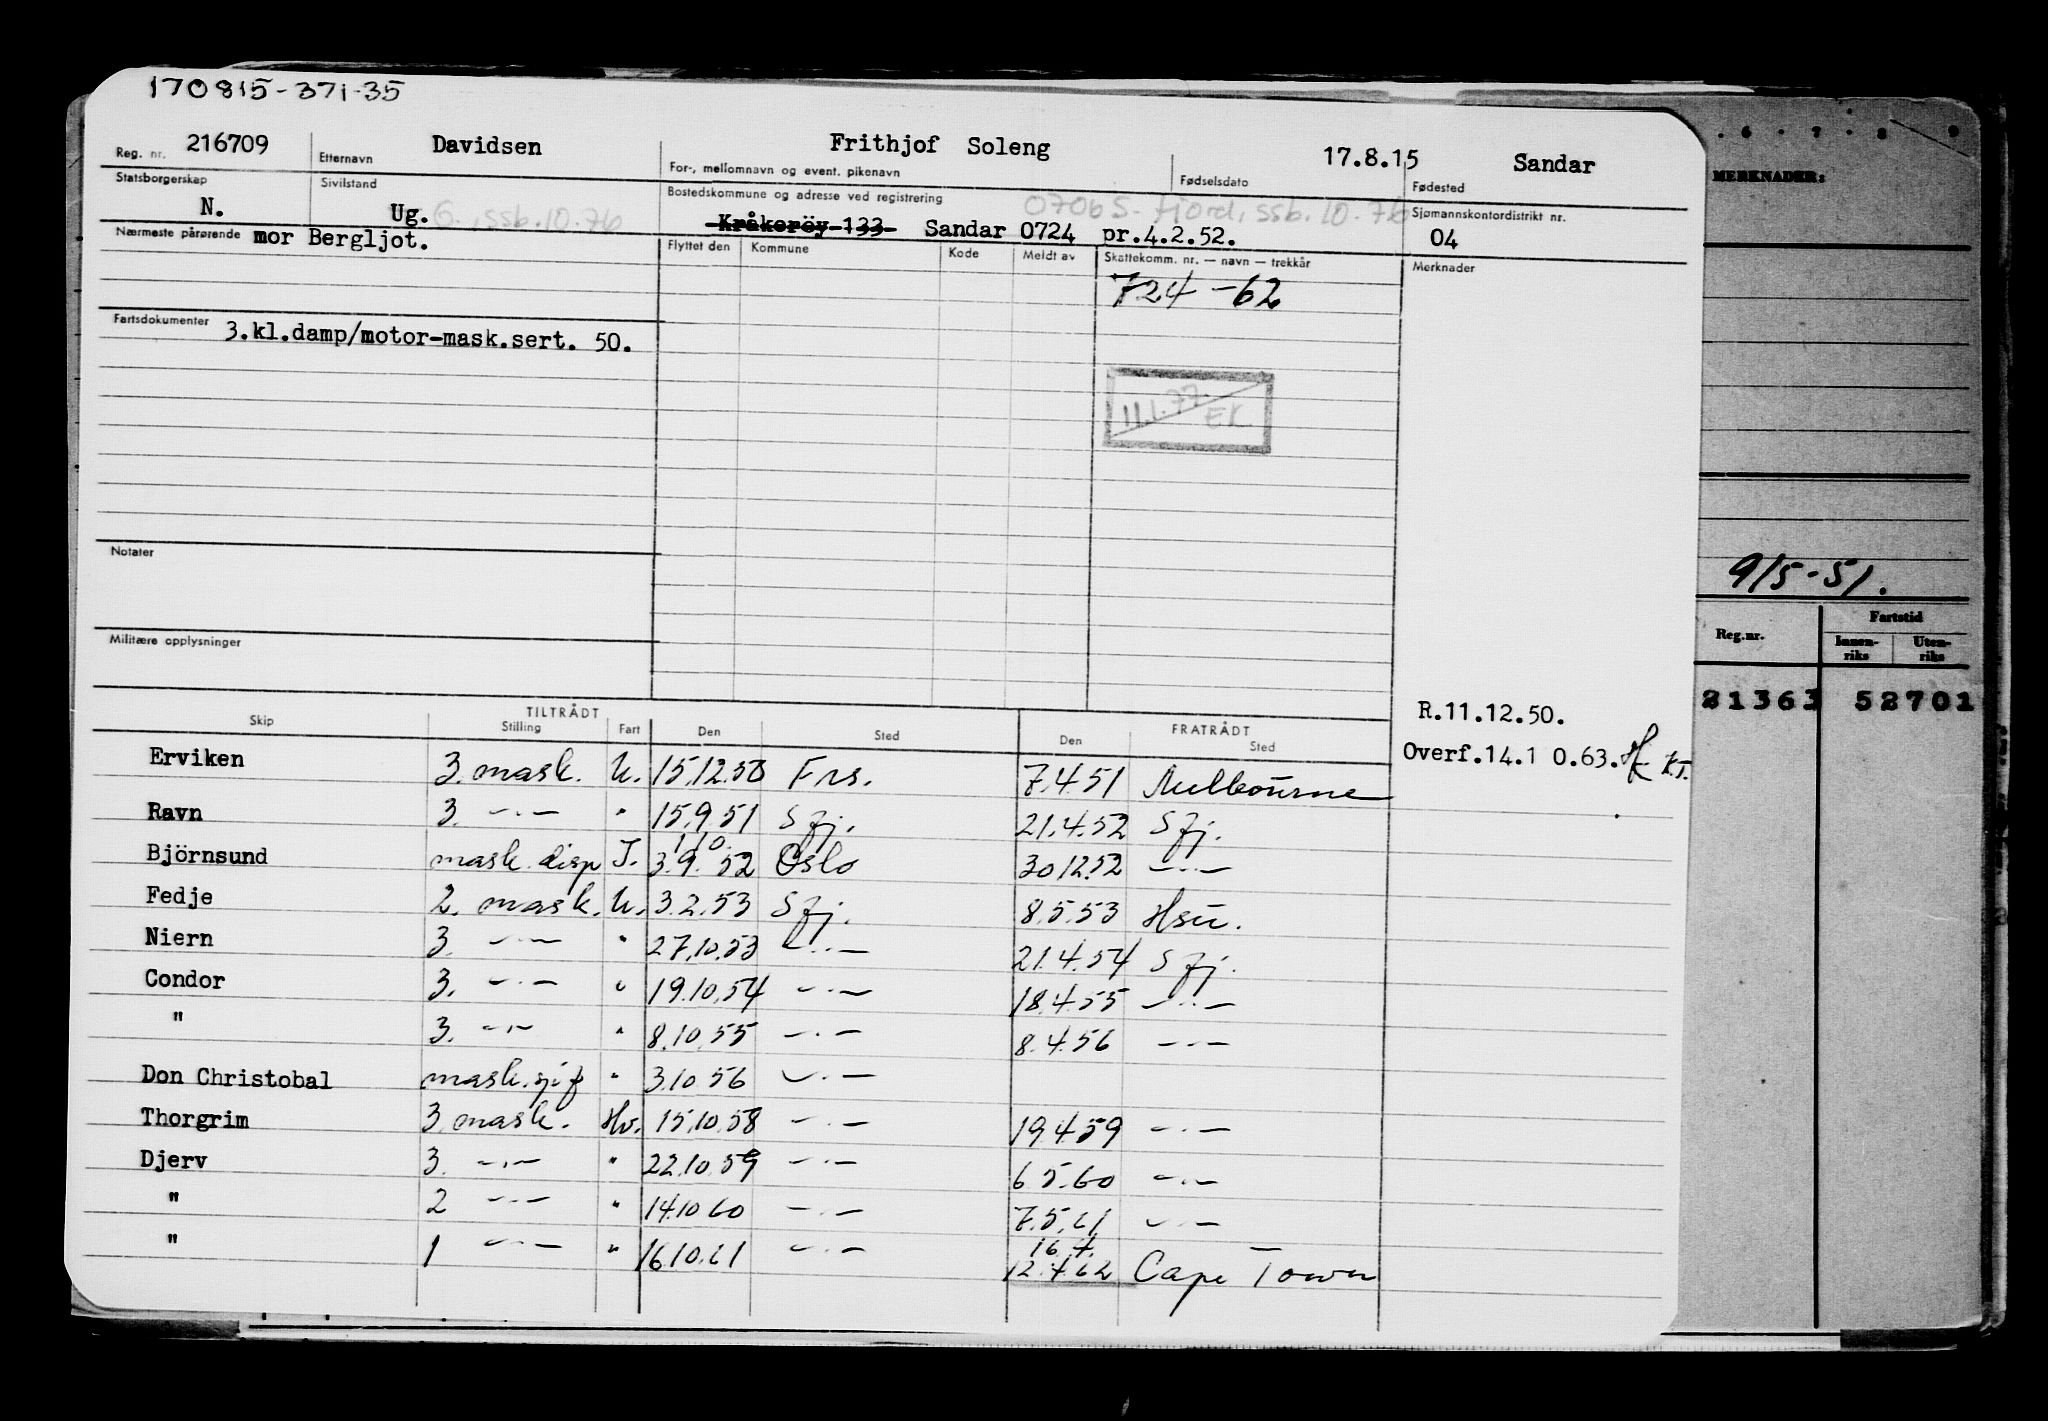 170815-371-35
216709 Davidsen Frithjof Soleng 17.8.15 Sandar
Reg. nr. Etternavn For-, mellomnavn og event. pikenavn Fødselsdato Fødested
Statsborgerskap Sivilstand Bostedskommune og adresse ved registrering Sjømannskontordistrikt nr.
N. Ug. G., ssb.10.76 0706 S. fjord, ssb. 10-76
Kråkeröy 133 Sandar 0724 pr.4.2.52. 04
Nærmeste pårørende mor Bergljot. Flyttet den Kommune Kode Meldt av Skattekomm. nr. — navn — trekkår Merknader
724 -62
Fartsdokumenter 3.kl.damp/motor-mask.sert. 50.
11.1.77. EK
Notater
Militære opplysninger
R.11.12.50.
Overf.14.1 0.63. K.T.
TILTRÅDT FRATRÅDT
Skip Stilling Fart Den Sted Den Sted
Erviken 3. mask. U. 15.12.50 Frs. 7.4.51 Melbourne
Ravn 3. —·— " 15.9.51 Sfj. 21.4.52 Sfj.
1.10.
Björnsund mask. disp J. 3.9.52 Oslo 30.12.52 —·—
Fedje 2. mask. U. 3.2.53 Sfj. 8.5.53 Hsu.
Niern 3. —·— " 27.10.53 —·— 21.4.54 Sfj.
Condor 3. —·— " 19.10.54 —·— 18.4.55 —·—
" 3. —·— " 8.10.55 —·— 8.4.56 —·—
Don Christobal mask. " 3.10 56 —·—
Thorgrim 3. mask. Hv. 15.10.58 —·— 19.4.59 —·—
Djerv 3. —·— " 22.10.59 —·— 6 5.60 —·—
" 2 —·— " 14.10 60 —·— 7.5.61 —·—
16.4.
" 1 —·— " 16.10.61 —·— 12.4.62 Cape Town
. 6 . 7 . 8 9
MERKNADER:
9/5-51.
Reg.nr. Fartstid
Innen-riks Uten-riks
21363 52701